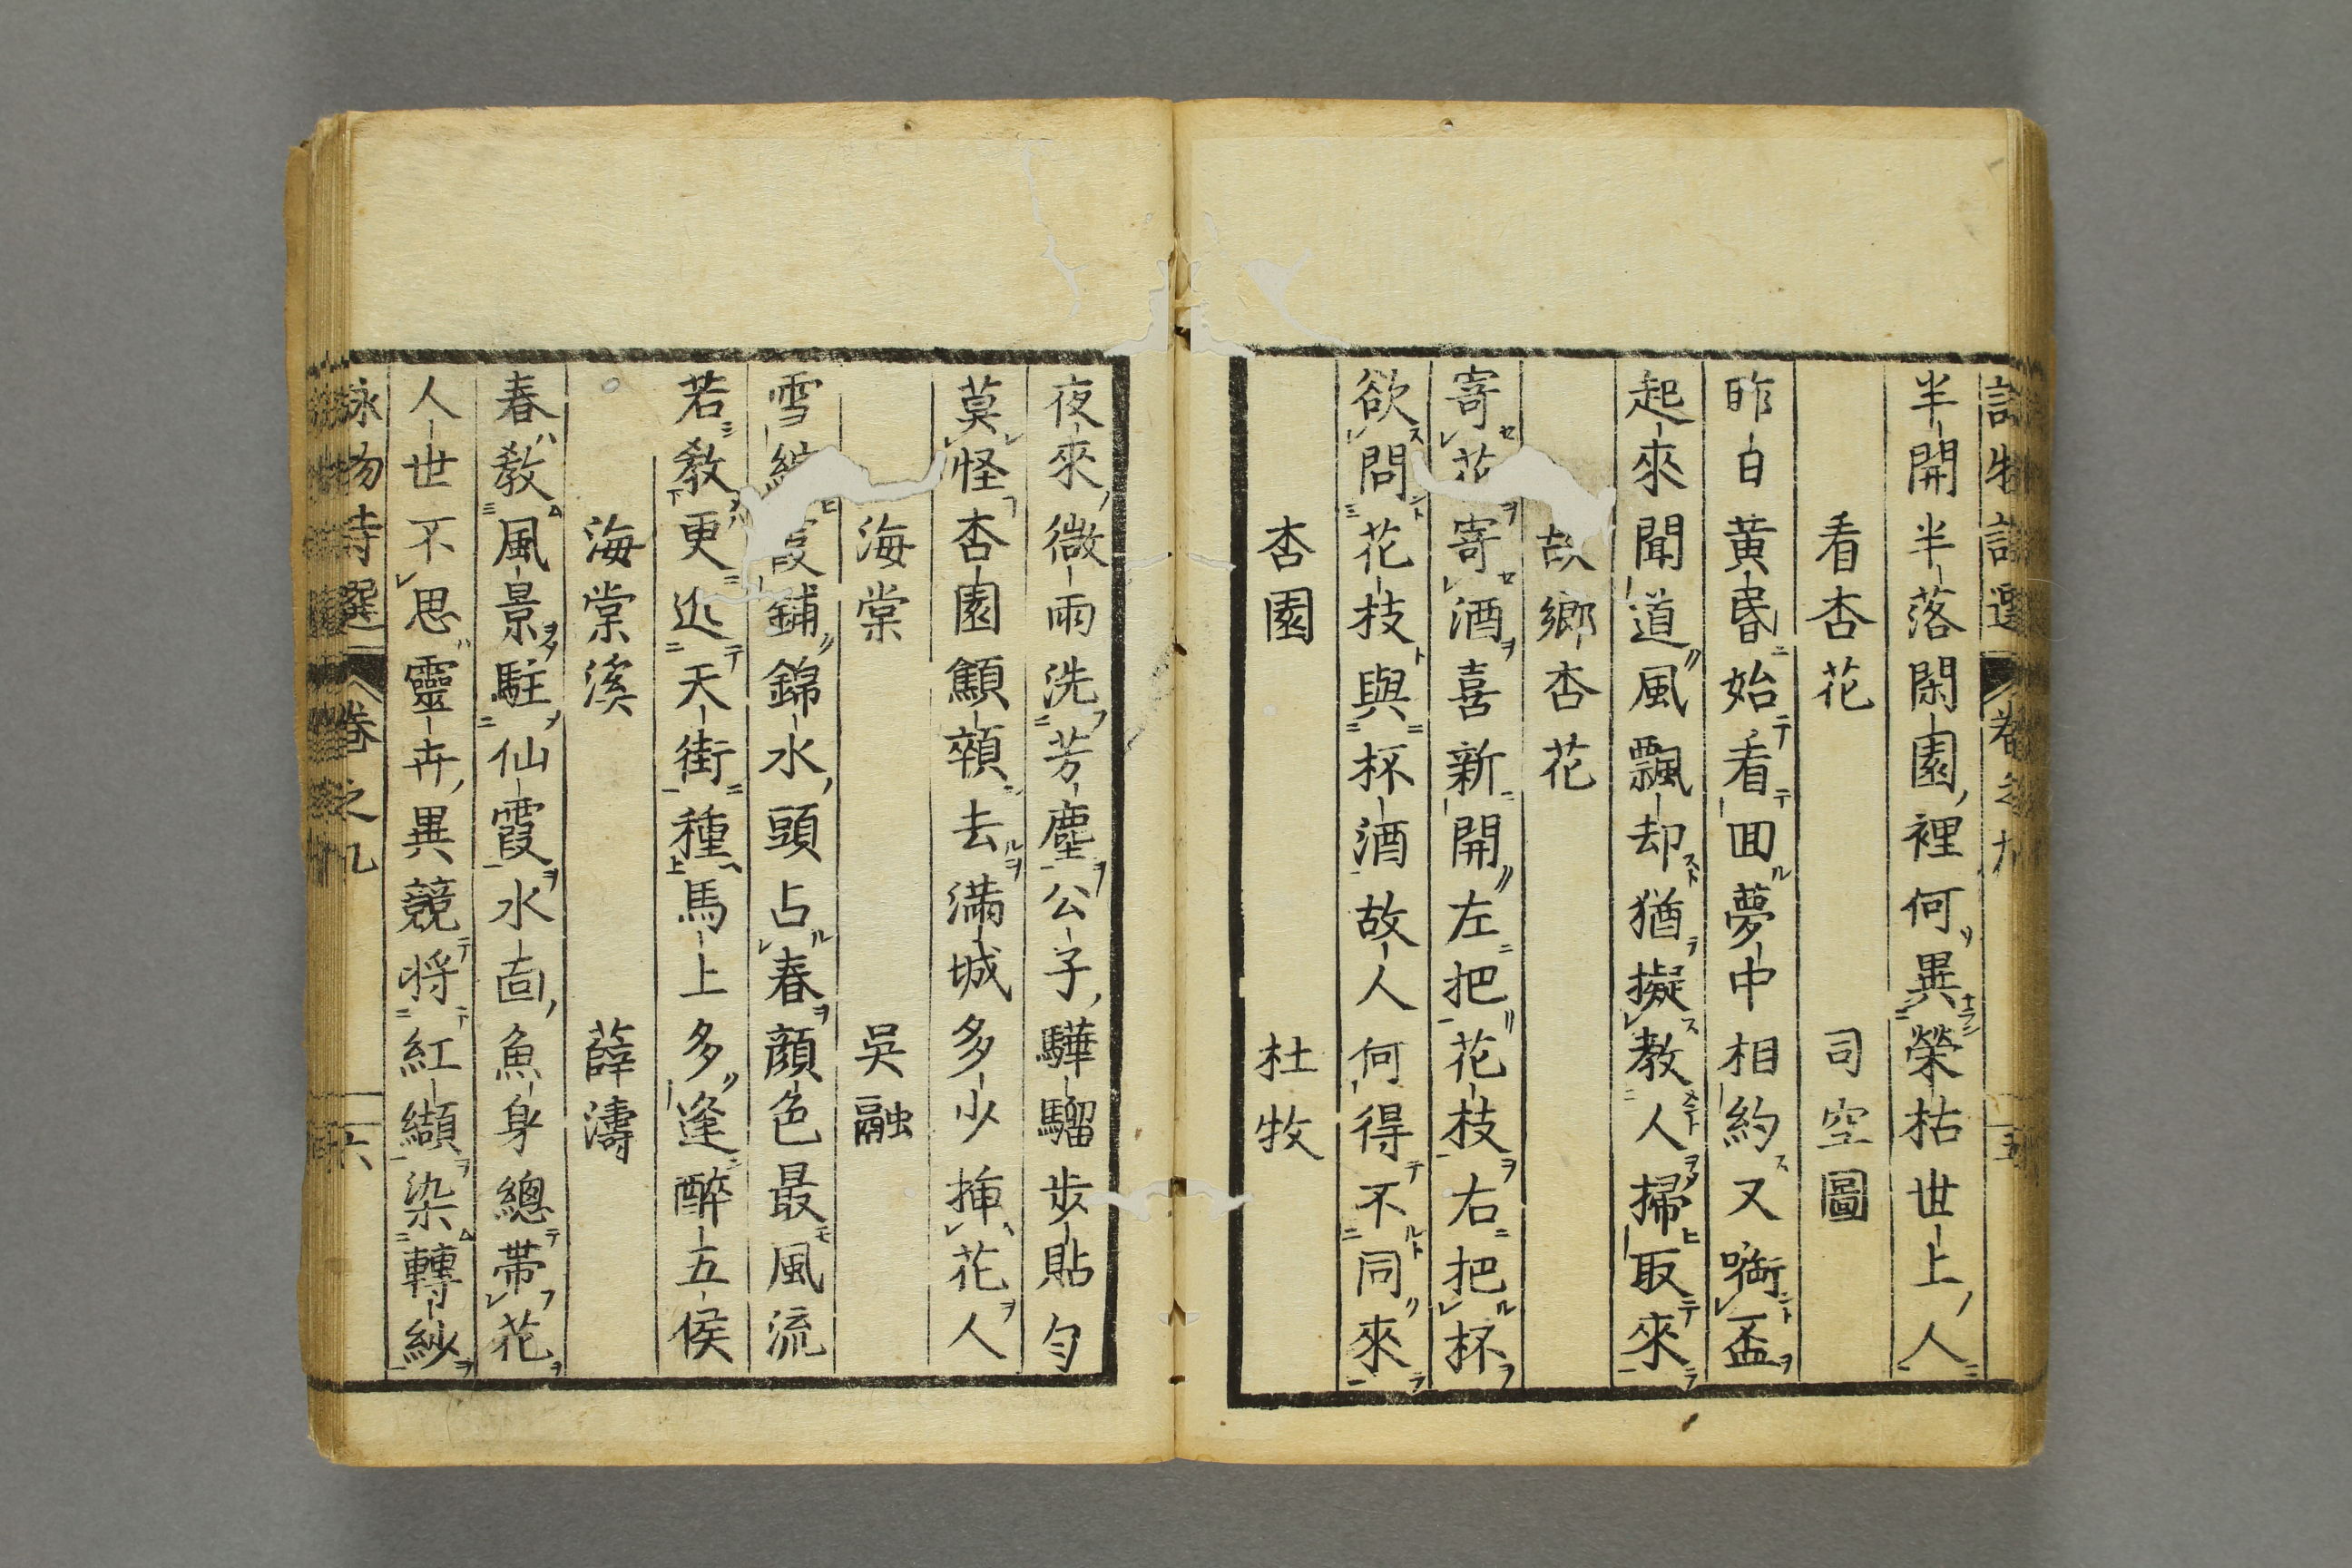 詠物詩選 卷之九 五
半開半落閑園裡何異榮枯世上人
看杏花 司空圖
昨日黄昏始看囬夢中相約又㗸盃
起來聞道風飄却猶擬教人掃取來
故鄉杏花
寄花寄酒喜新開左把花枝右把杯
欲問花枝與杯酒故人何得不同來
杏園 杜牧
夜來微雨洗芳塵公子驊騮步貼勻
莫怪杏園顦顇去滿城多少揷花人
海棠 吳融
雪綻霞鋪錦水頭占春顔色最風流
若教更近天街種馬上多逢醉五侯
海棠溪 薛濤
春教風景駐仙霞水面魚身總帶花
人世不思靈卉異競將紅纈染轉紗
詠物詩選 卷之九 六